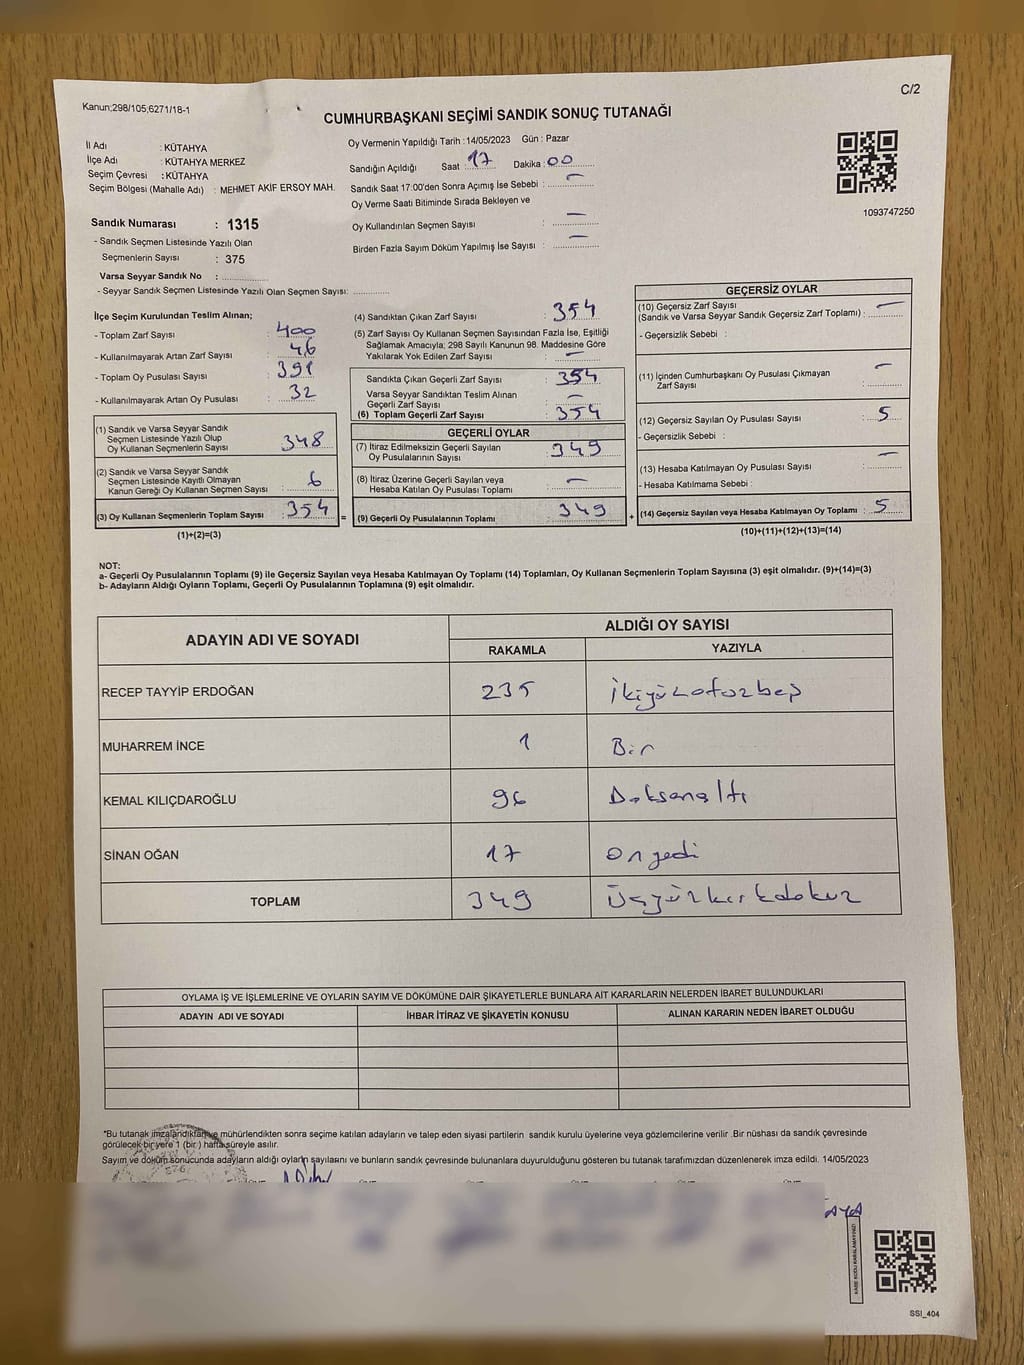 Kanun;298/105;6271/18-1
C/2
CUMHURBAŞKANI SEÇİMİ SANDIK SONUÇ TUTANAĞI
İl Adı : KÜTAHYA
İlçe Adı : KÜTAHYA MERKEZ
Seçim Çevresi : KÜTAHYA
Seçim Bölgesi (Mahalle Adı) : MEHMET AKİF ERSOY MAH.
Sandık Numarası : 1315
- Sandık Seçmen Listesinde Yazılı Olan
Seçmenlerin Sayısı : 375
Varsa Seyyar Sandık No :
- Seyyar Sandık Seçmen Listesinde Yazılı Olan Seçmen Sayısı:
Oy Vermenin Yapıldığı Tarih : 14/05/2023 Gün : Pazar
Sandığın Açıldığı Saat : 17 Dakika : 00
Sandık Saat 17:00'den Sonra Açımış İse Sebebi : —
Oy Verme Saati Bitiminde Sırada Bekleyen ve
Oy Kullandırılan Seçmen Sayısı : —
Birden Fazla Sayım Döküm Yapılmış İse Sayısı : —
1093747250
İlçe Seçim Kurulundan Teslim Alınan;
- Toplam Zarf Sayısı : 400
- Kullanılmayarak Artan Zarf Sayısı : 46
- Toplam Oy Pusulası Sayısı : 391
- Kullanılmayarak Artan Oy Pusulası : 32
(1) Sandık ve Varsa Seyyar Sandık
Seçmen Listesinde Yazılı Olup
Oy Kullanan Seçmenlerin Sayısı : 348
(2) Sandık ve Varsa Seyyar Sandık
Seçmen Listesinde Kayıtlı Olmayan
Kanun Gereği Oy Kullanan Seçmen Sayısı : 6
(3) Oy Kullanan Seçmenlerin Toplam Sayısı : 354
(1)+(2)=(3)
(4) Sandıktan Çıkan Zarf Sayısı : 354
(5) Zarf Sayısı Oy Kullanan Seçmen Sayısından Fazla İse, Eşitliği
Sağlamak Amacıyla; 298 Sayılı Kanunun 98. Maddesine Göre
Yakılarak Yok Edilen Zarf Sayısı : —
Sandıkta Çıkan Geçerli Zarf Sayısı : 354
Varsa Seyyar Sandıktan Teslim Alınan
Geçerli Zarf Sayısı : —
(6) Toplam Geçerli Zarf Sayısı : 354
GEÇERLİ OYLAR
(7) İtiraz Edilmeksizin Geçerli Sayılan
Oy Pusulalarının Sayısı : 349
(8) İtiraz Üzerine Geçerli Sayılan veya
Hesaba Katılan Oy Pusulası Toplamı : —
= (9) Geçerli Oy Pusulalarının Toplamı : 349
GEÇERSİZ OYLAR
(10) Geçersiz Zarf Sayısı
(Sandık ve Varsa Seyyar Sandık Geçersiz Zarf Toplamı) : —
- Geçersizlik Sebebi :
(11) İçinden Cumhurbaşkanı Oy Pusulası Çıkmayan
Zarf Sayısı : —
(12) Geçersiz Sayılan Oy Pusulası Sayısı : 5
- Geçersizlik Sebebi :
(13) Hesaba Katılmayan Oy Pusulası Sayısı : —
- Hesaba Katılmama Sebebi :
+ (14) Geçersiz Sayılan veya Hesaba Katılmayan Oy Toplamı : 5
(10)+(11)+(12)+(13)=(14)
NOT:
a- Geçerli Oy Pusulalarının Toplamı (9) ile Geçersiz Sayılan veya Hesaba Katılmayan Oy Toplamı (14) Toplamları, Oy Kullanan Seçmenlerin Toplam Sayısına (3) eşit olmalıdır. (9)+(14)=(3)
b- Adayların Aldığı Oyların Toplamı, Geçerli Oy Pusulalarının Toplamına (9) eşit olmalıdır.
ADAYIN ADI VE SOYADI ALDIĞI OY SAYISI
RAKAMLA YAZIYLA
RECEP TAYYİP ERDOĞAN 235 İkiyüzotuzbeş
MUHARREM İNCE 1 Bir
KEMAL KILIÇDAROĞLU 96 Doksanaltı
SİNAN OĞAN 17 Onyedi
TOPLAM 349 Üçyüzkırkdokuz
OYLAMA İŞ VE İŞLEMLERİNE VE OYLARIN SAYIM VE DÖKÜMÜNE DAİR ŞİKAYETLERLE BUNLARA AİT KARARLARIN NELERDEN İBARET BULUNDUKLARI
ADAYIN ADI VE SOYADI İHBAR İTİRAZ VE ŞİKAYETİN KONUSU ALINAN KARARIN NEDEN İBARET OLDUĞU
*Bu tutanak imzalandıktan ve mühürlendikten sonra seçime katılan adayların ve talep eden siyasi partilerin sandık kurulu üyelerine veya gözlemcilerine verilir .Bir nüshası da sandık çevresinde
görülecek bir yere 1 (bir ) hafta süreyle asılır.
Sayım ve döküm sonucunda adayların aldığı oyların sayılarını ve bunların sandık çevresinde bulunanlara duyurulduğunu gösteren bu tutanak tarafımızdan düzenlenerek imza edildi. 14/05/2023
SSI_404